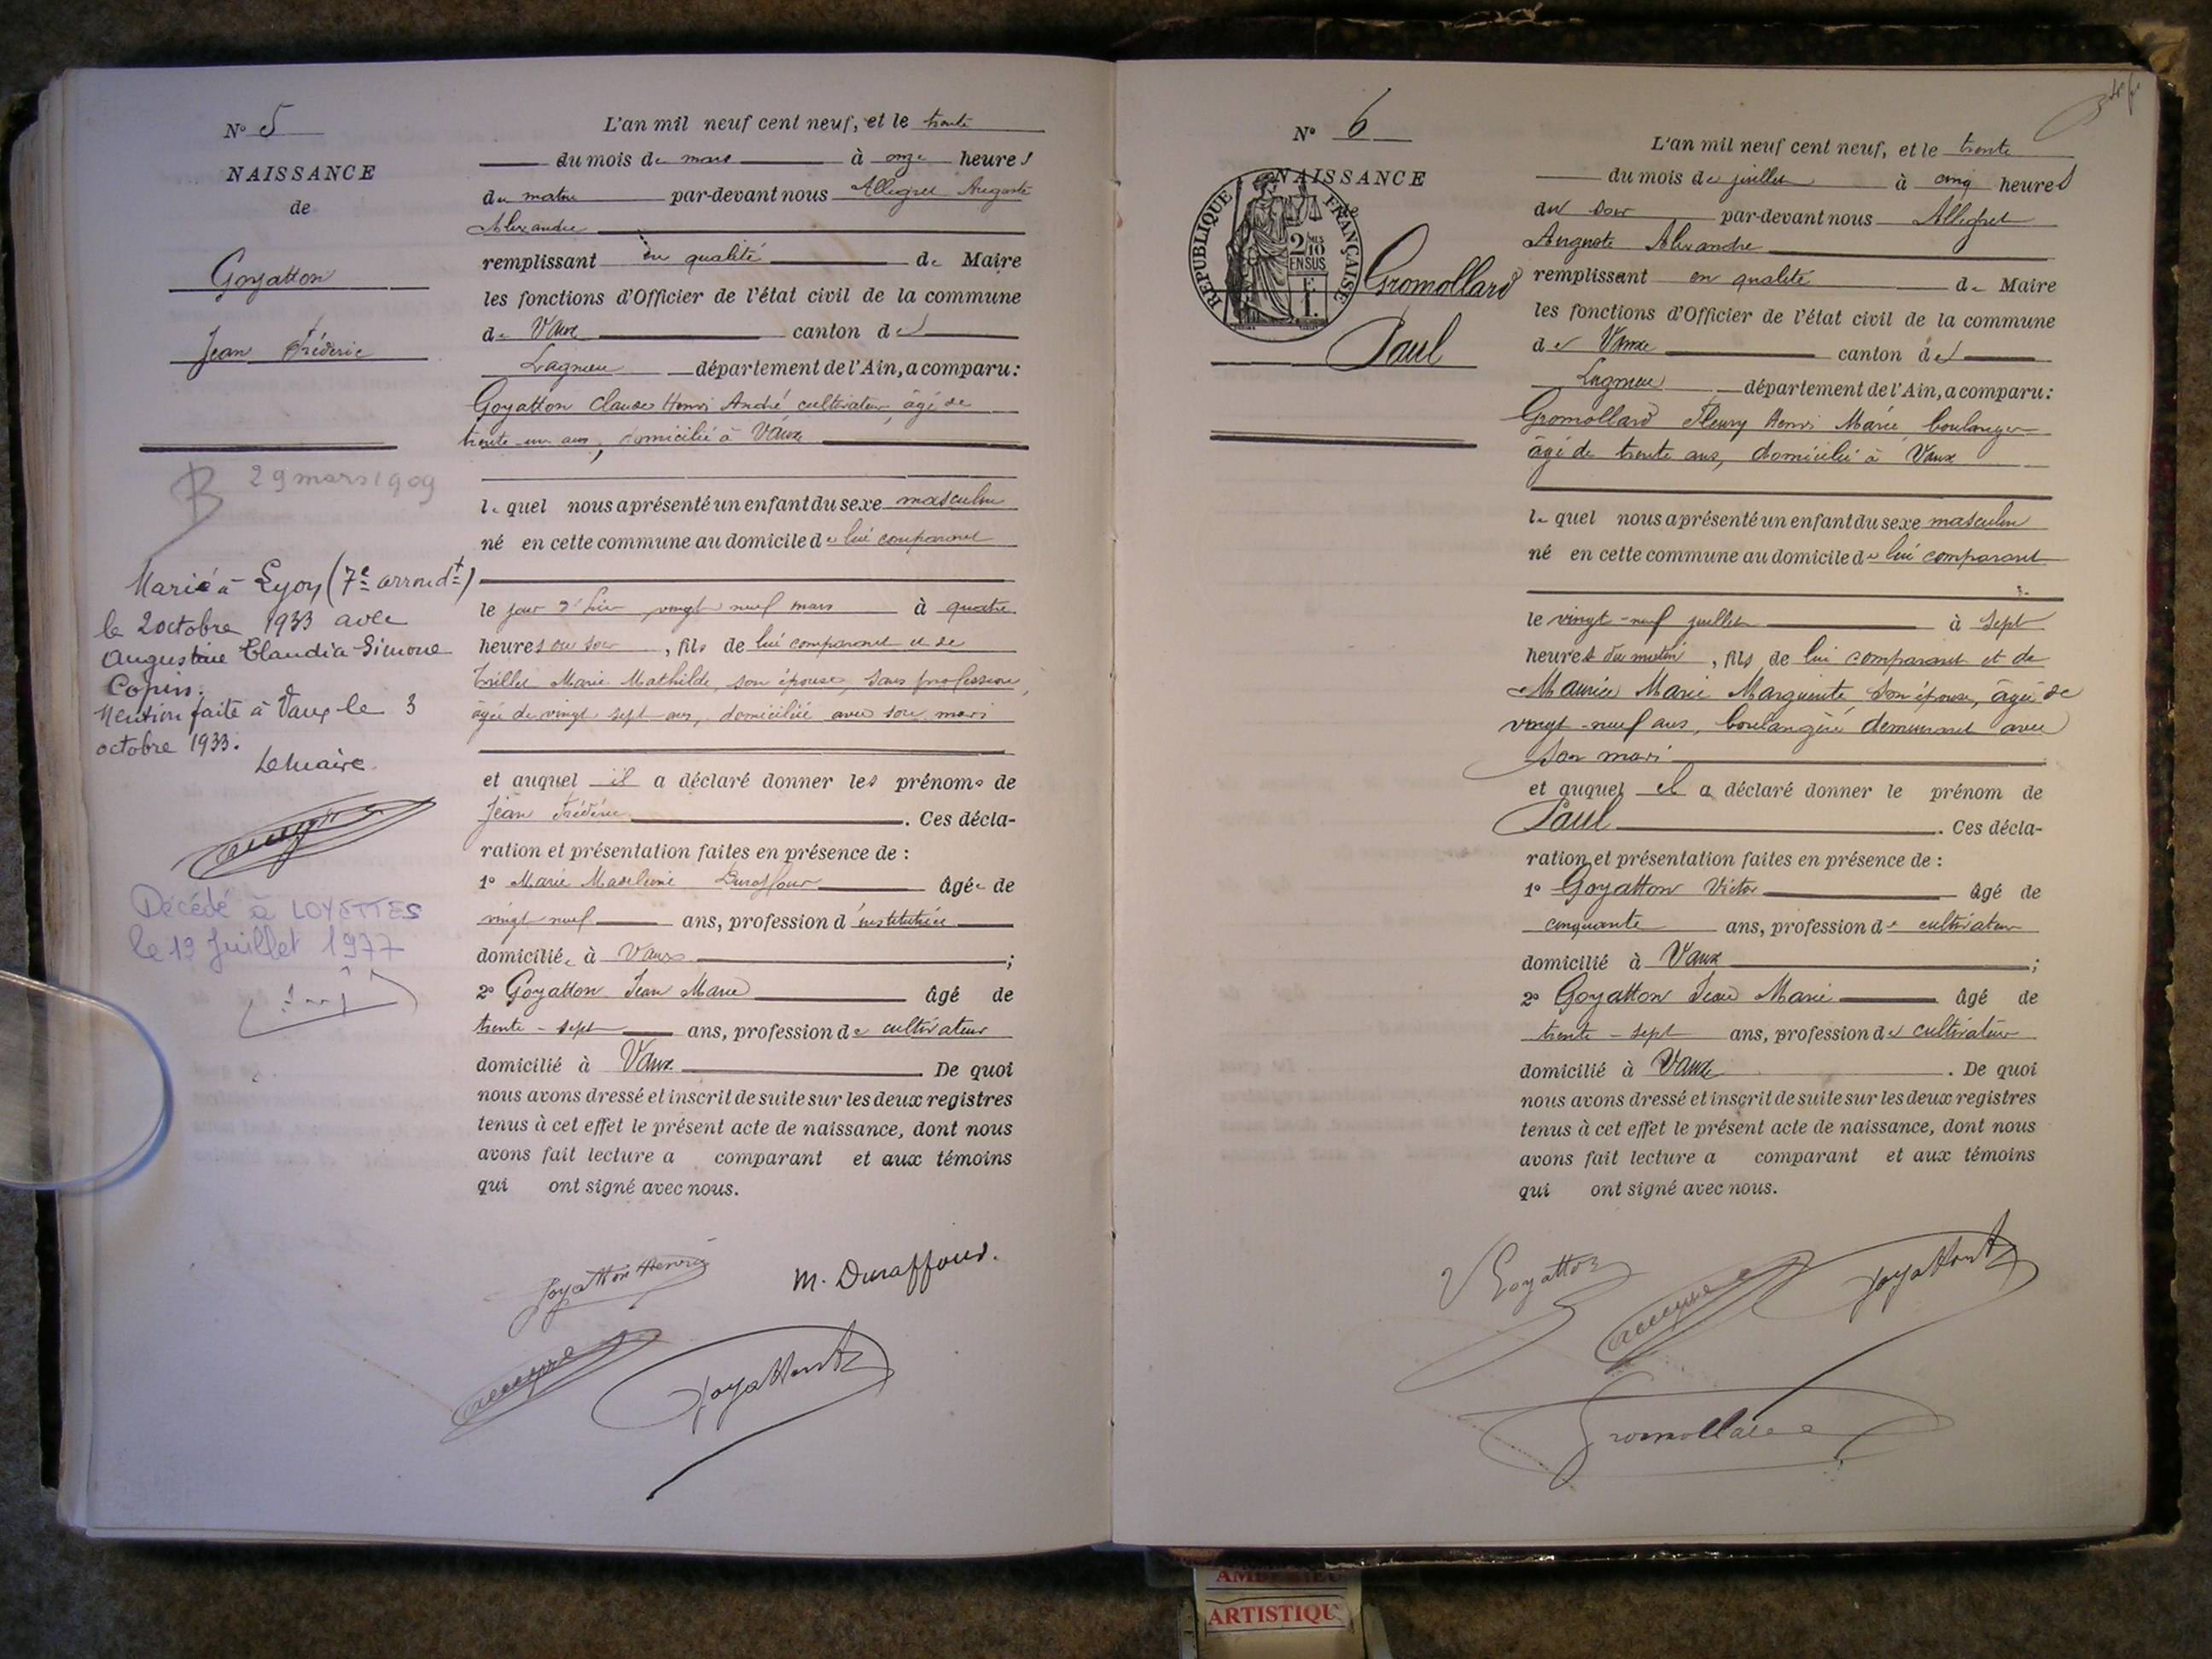 N° 5
NAISSANCE
de
Goyatton
Jean Fréderic
29 mars 1909
Marié à Lyon (7e arrondt)
le 2 octobre 1933 avec
Augustine Claudia Simone
Copin.
Mention faite à Vaux le 3
octobre 1933.
Le Maire
Décédé à LOYETTES
le 19 Juillet 1977
L'an mil neuf cent neuf, et le trente
du mois de mars à onze heures
du matin par-devant nous Allegret Auguste
Alexandre
remplissant en qualité de Maire
les fonctions d'Officier de l'état civil de la commune
de Vaux canton de
Lagnieu département de l'Ain, a comparu:
Goyatton Claude Henri André cultivateur, âgé de
trente-un ans, domicilié à Vaux
lequel nous a présenté un enfant du sexe masculin
né en cette commune au domicile de lui comparant
le jour d'hier vingt neuf mars à quatre
heures du soir, fils de lui comparant et de
Trillet Marie Mathilde, son épouse, sans profession,
âgée de vingt sept ans, domiciliée avec son mari
et auquel il a déclaré donner les prénoms de
Jean Fréderic. Ces décla-
ration et présentation faites en présence de :
1° Marie Madeleine Duraffour âgée de
vingt neuf ans, profession d'institutrice
domiciliée à Vaux;
2° Goyatton Jean Marie âgé de
trente-sept ans, profession de cultivateur
domicilié à Vaux. De quoi
nous avons dressé et inscrit de suite sur les deux registres
tenus à cet effet le présent acte de naissance, dont nous
avons fait lecture a comparant et aux témoins
qui ont signé avec nous.
Goyatton Henri
M. Duraffour.
Goyatton
N° 6
NAISSANCE
de
RÉPUBLIQUE FRANÇAISE
2/10MES
EN SUS
Gromollard
Paul
L'an mil neuf cent neuf, et le trente
du mois de juillet à cinq heures
du soir par-devant nous Allegret
Auguste Alexandre
remplissant en qualité de Maire
les fonctions d'Officier de l'état civil de la commune
de Vaux canton de
Lagnieu département de l'Ain, a comparu:
Gromollard Fleury Henri Marie, boulanger
âgé de trente ans, domicilié à Vaux
lequel nous a présenté un enfant du sexe masculin
né en cette commune au domicile de lui comparant
le vingt-neuf juillet à sept
heures du matin, fils de lui comparant et de
Maurice Marie Marguerite, son épouse, âgée de
vingt-neuf ans, boulangère demeurant avec
son mari
et auquel il a déclaré donner le prénom de
Paul. Ces décla-
ration et présentation faites en présence de :
1° Goyatton Victor âgé de
cinquante ans, profession de cultivateur
domicilié à Vaux;
2° Goyatton Jean Marie âgé de
trente-sept ans, profession de cultivateur
domicilié à Vaux. De quoi
nous avons dressé et inscrit de suite sur les deux registres
tenus à cet effet le présent acte de naissance, dont nous
avons fait lecture a comparant et aux témoins
qui ont signé avec nous.
V Goyatton
Goyatton
Gromollard
AMBERIEU
ARTISTIQU